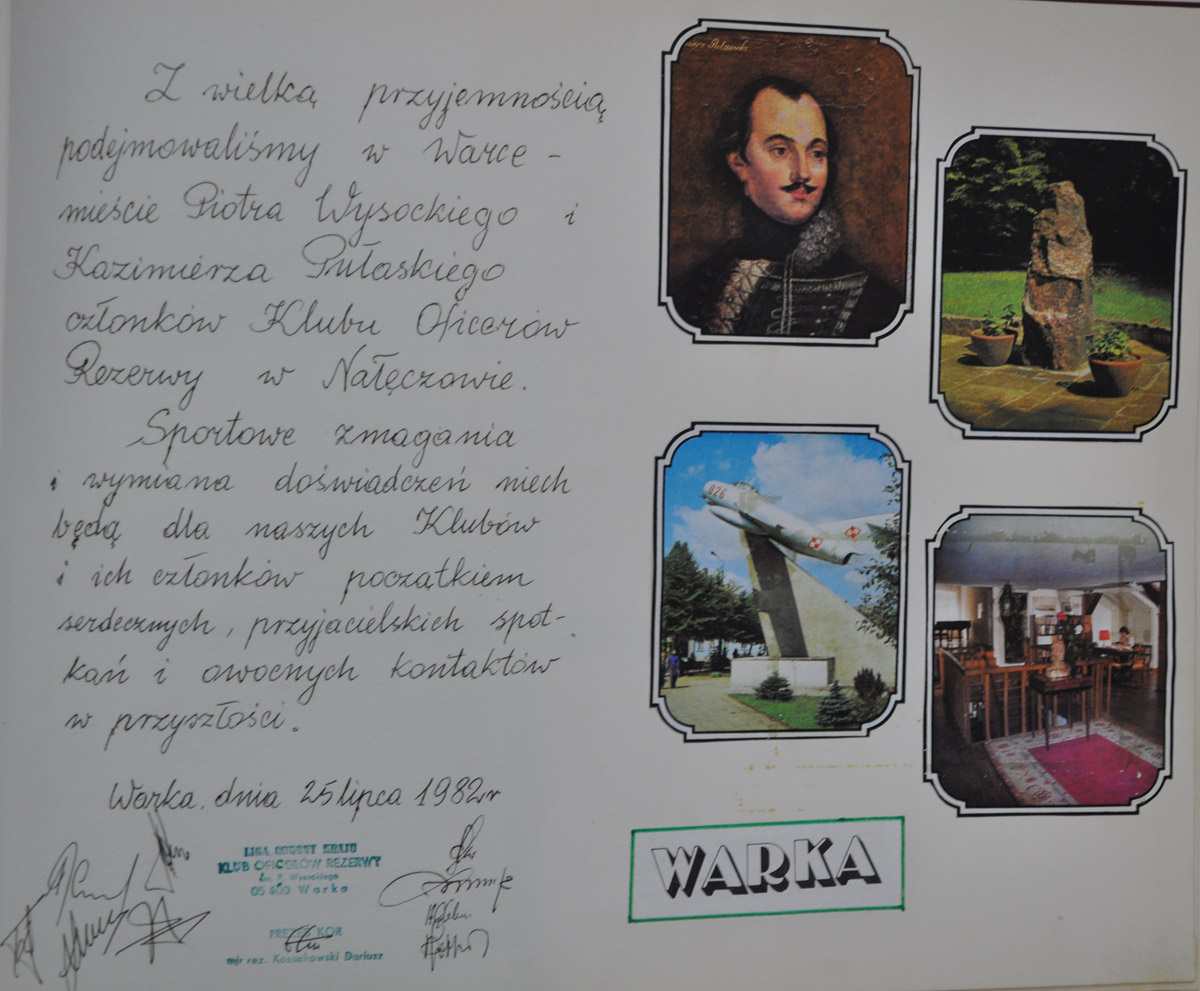 Z wielką przyjemnością
podejmowaliśmy w Warce -
mieście Piotra Wysockiego i
Kazimierza Pułaskiego
członków Klubu Oficerów
Rezerwy w Nałęczowie.
Sportowe zmagania
i wymiana doświadczeń niech
będą dla naszych Klubów
i ich członków początkiem
serdecznych, przyjacielskich spot-
kań i owocnych kontaktów
w przyszłości.
Warka, dnia 25 lipca 1982r
LIGA OBRONY KRAJU
KLUB OFICERÓW REZERWY
im. P. Wysockiego
05 600 Warka
PREZES KOR
mjr rez. Kossakowski Dariusz
026
WARKA